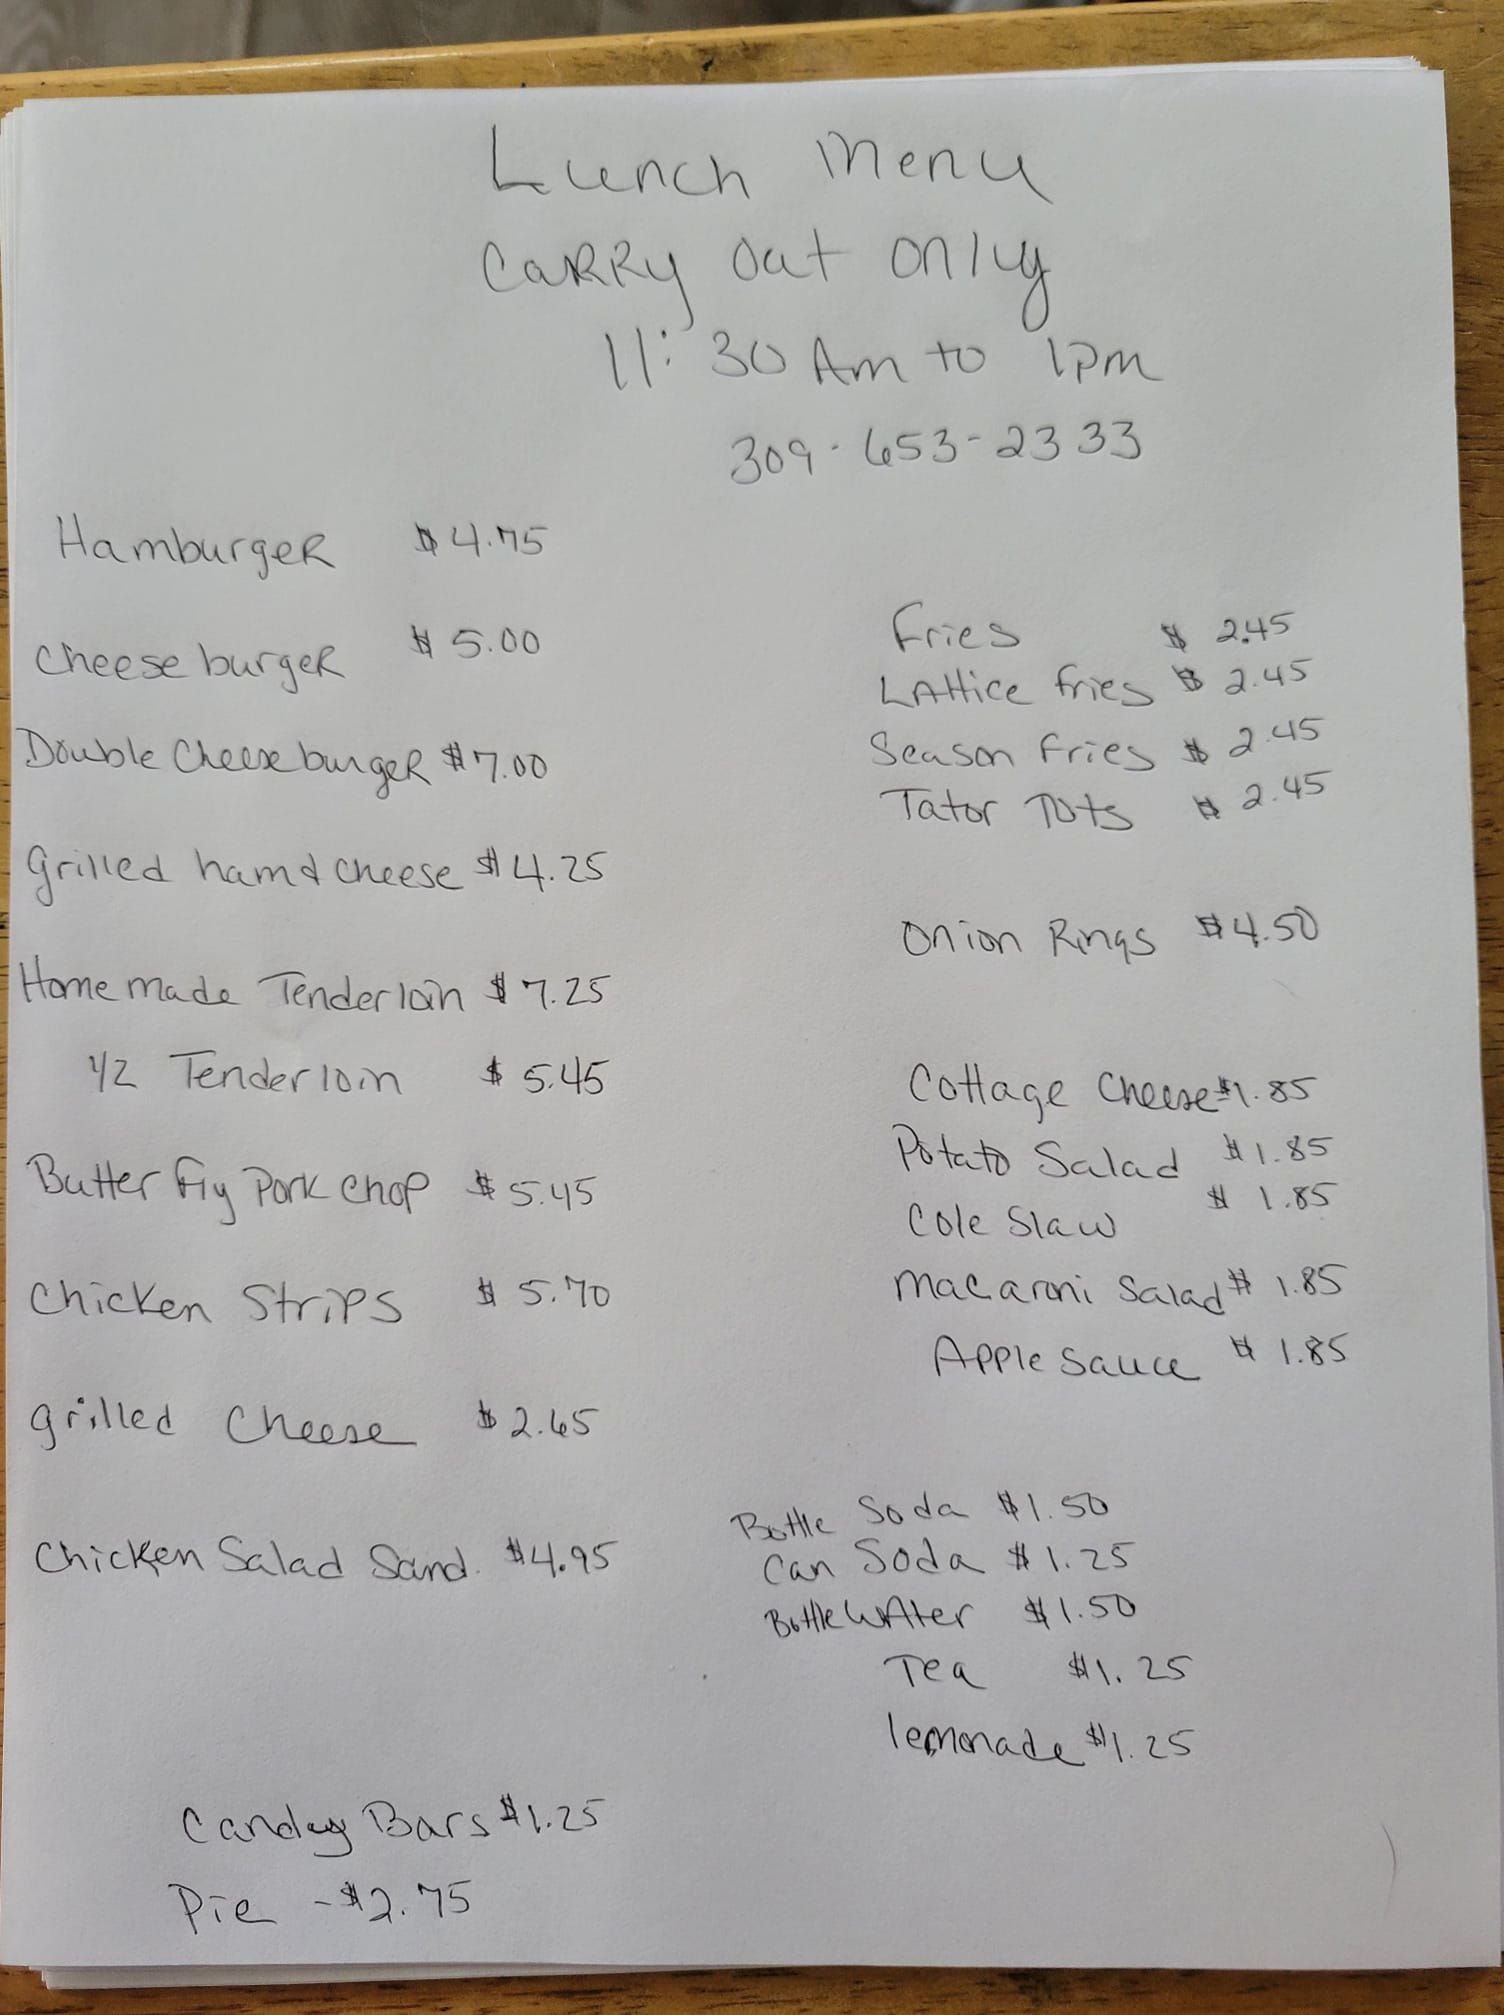 Lunch Menu
Carry Out Only
11:30 Am to 1pm
309-653-2333
Hamburger $4.75
Cheeseburger $5.00
Double Cheeseburger $7.00
Grilled ham & cheese $4.25
Homemade Tenderloin $7.25
1/2 Tenderloin $5.45
Butter fly Pork chop $5.45
Chicken Strips $5.70
Grilled Cheese $2.65
Chicken Salad Sand. $4.95
Fries $2.45
Lattice fries $2.45
Season Fries $2.45
Tator Tots $2.45
Onion Rings $4.50
Cottage Cheese $1.85
Potato Salad $1.85
Cole Slaw $1.85
Macaroni Salad $1.85
Apple Sauce $1.85
Bottle Soda $1.50
Can Soda $1.25
Bottle Water $1.50
Tea $1.25
lemonade $1.25
Candy Bars $1.25
Pie - $2.75